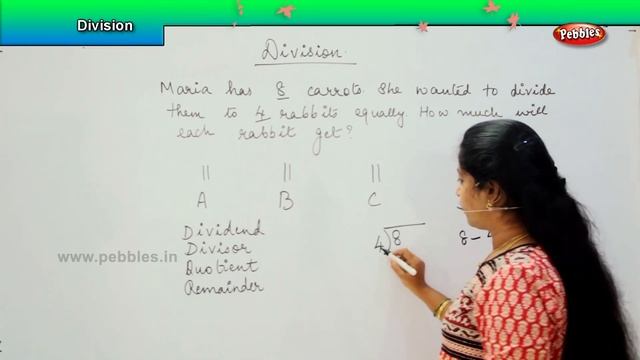 Division
Pebbles
Division.
Maria has 8 carrots. She wanted to divide
them to 4 rabbits equally. How much will
each rabbit get?
|| || ||
A B C
Dividend
Divisor
Quotient
Remainder
4 8
8 - 4
www.pebbles.in